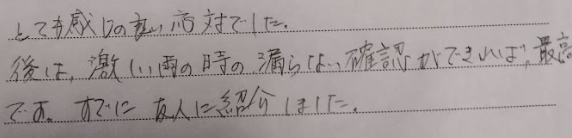 とても感じの良い応対でした。
後は、激しい雨の時の漏らない確認ができれば、最高
です。すでに友人に紹介しました。